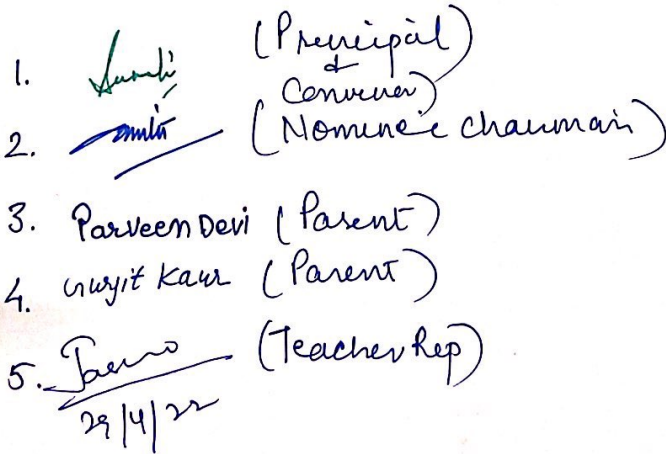 1. (Principal
&
Convener)
2. (Nominee Chairman)
3. Parveen Devi (Parent)
4. Gurjit Kaur (Parent)
5. (Teacher Rep)
29/4/22